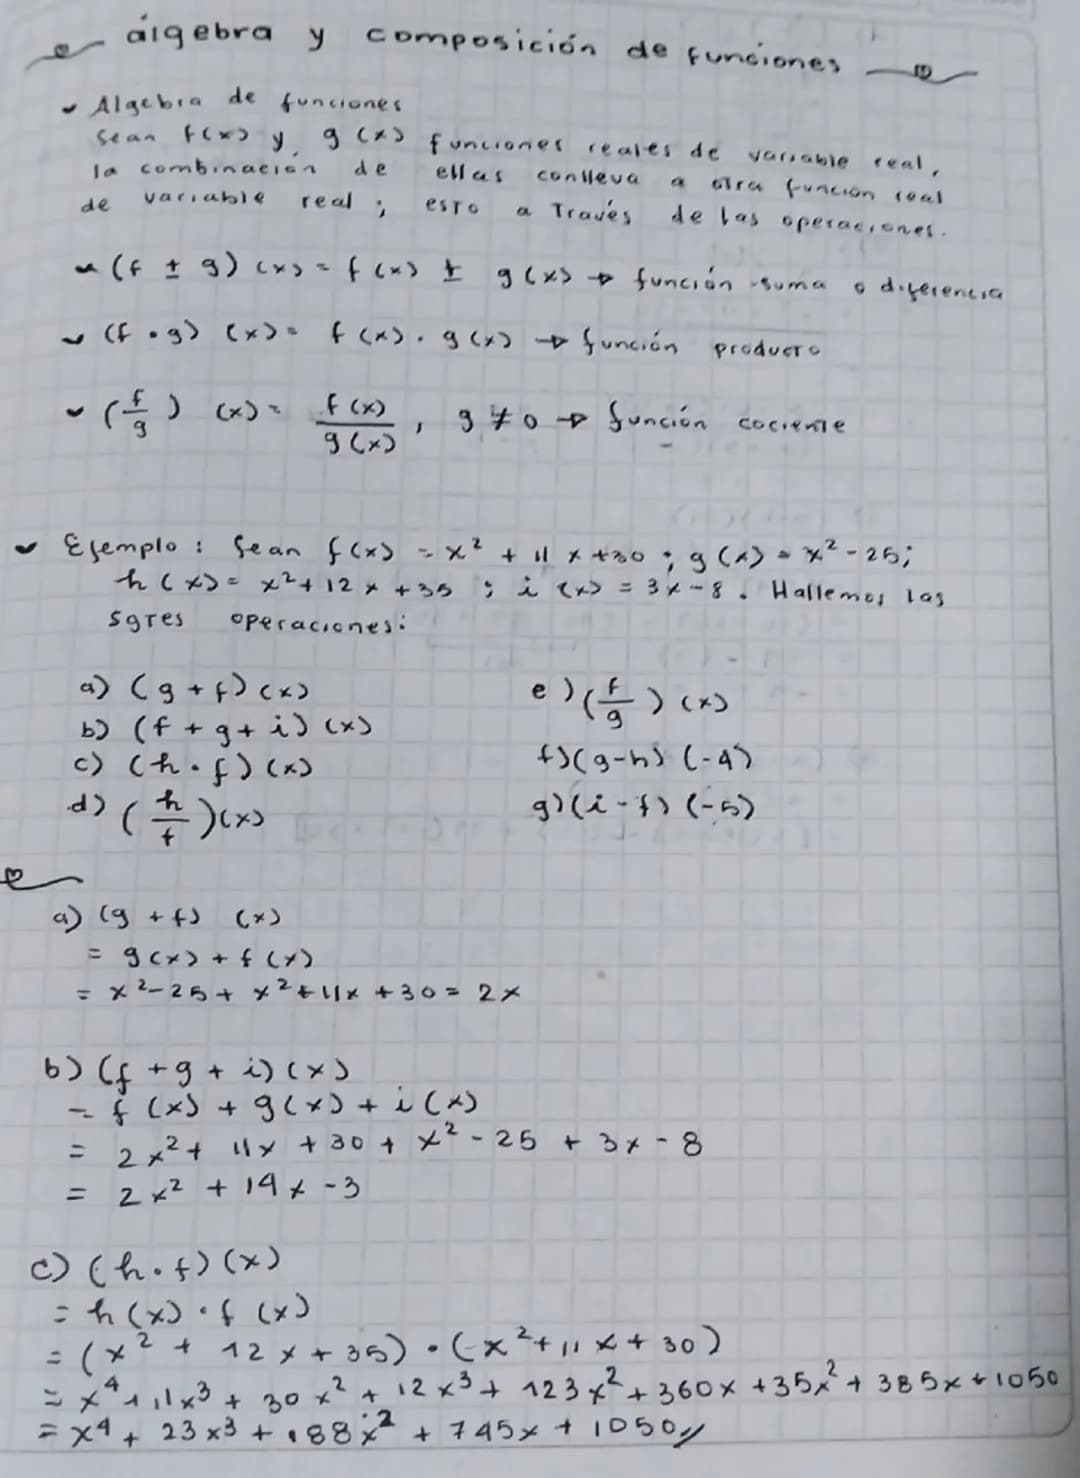 álgebra y composición de funciones
Algebra de funciones
Sean f(x) y g(x) funciones reales de variable real,
la combinación de ellas conlleva a otra función real
de variable real; esto a través de las operaciones.
(f ± g) (x) = f(x) ± g(x) → función suma o diferencia
(f • g) (x) = f(x) . g(x) → función producto
(f/g) (x) = f(x)/g(x), g ≠ 0 → función cociente
Ejemplo: Sean f(x) = x² + 11x + 30; g(x) = x² - 25;
h(x) = x² + 12x + 35; i(x) = 3x - 8. Hallemos las
sgtes operaciones:
a) (g + f) (x)
b) (f + g + i) (x)
c) (h • f) (x)
d) (h/f)(x)
e) (f/g) (x)
f) (g-h) (-4)
g) (i - f) (-5)
a) (g + f) (x)
= g(x) + f(x)
= x² - 25 + x² + 11x + 30 = 2x
b) (f + g + i) (x)
= f(x) + g(x) + i(x)
= 2x² + 11x + 30 + x² - 25 + 3x - 8
= 2x² + 14x - 3
c) (h • f) (x)
= h(x) • f(x)
= (x² + 12x + 35) • (x² + 11x + 30)
= x⁴ + 11x³ + 30x² + 12x³ + 123x² + 360x + 35x² + 385x + 1050
= x⁴ + 23x³ + 188x² + 745x + 1050